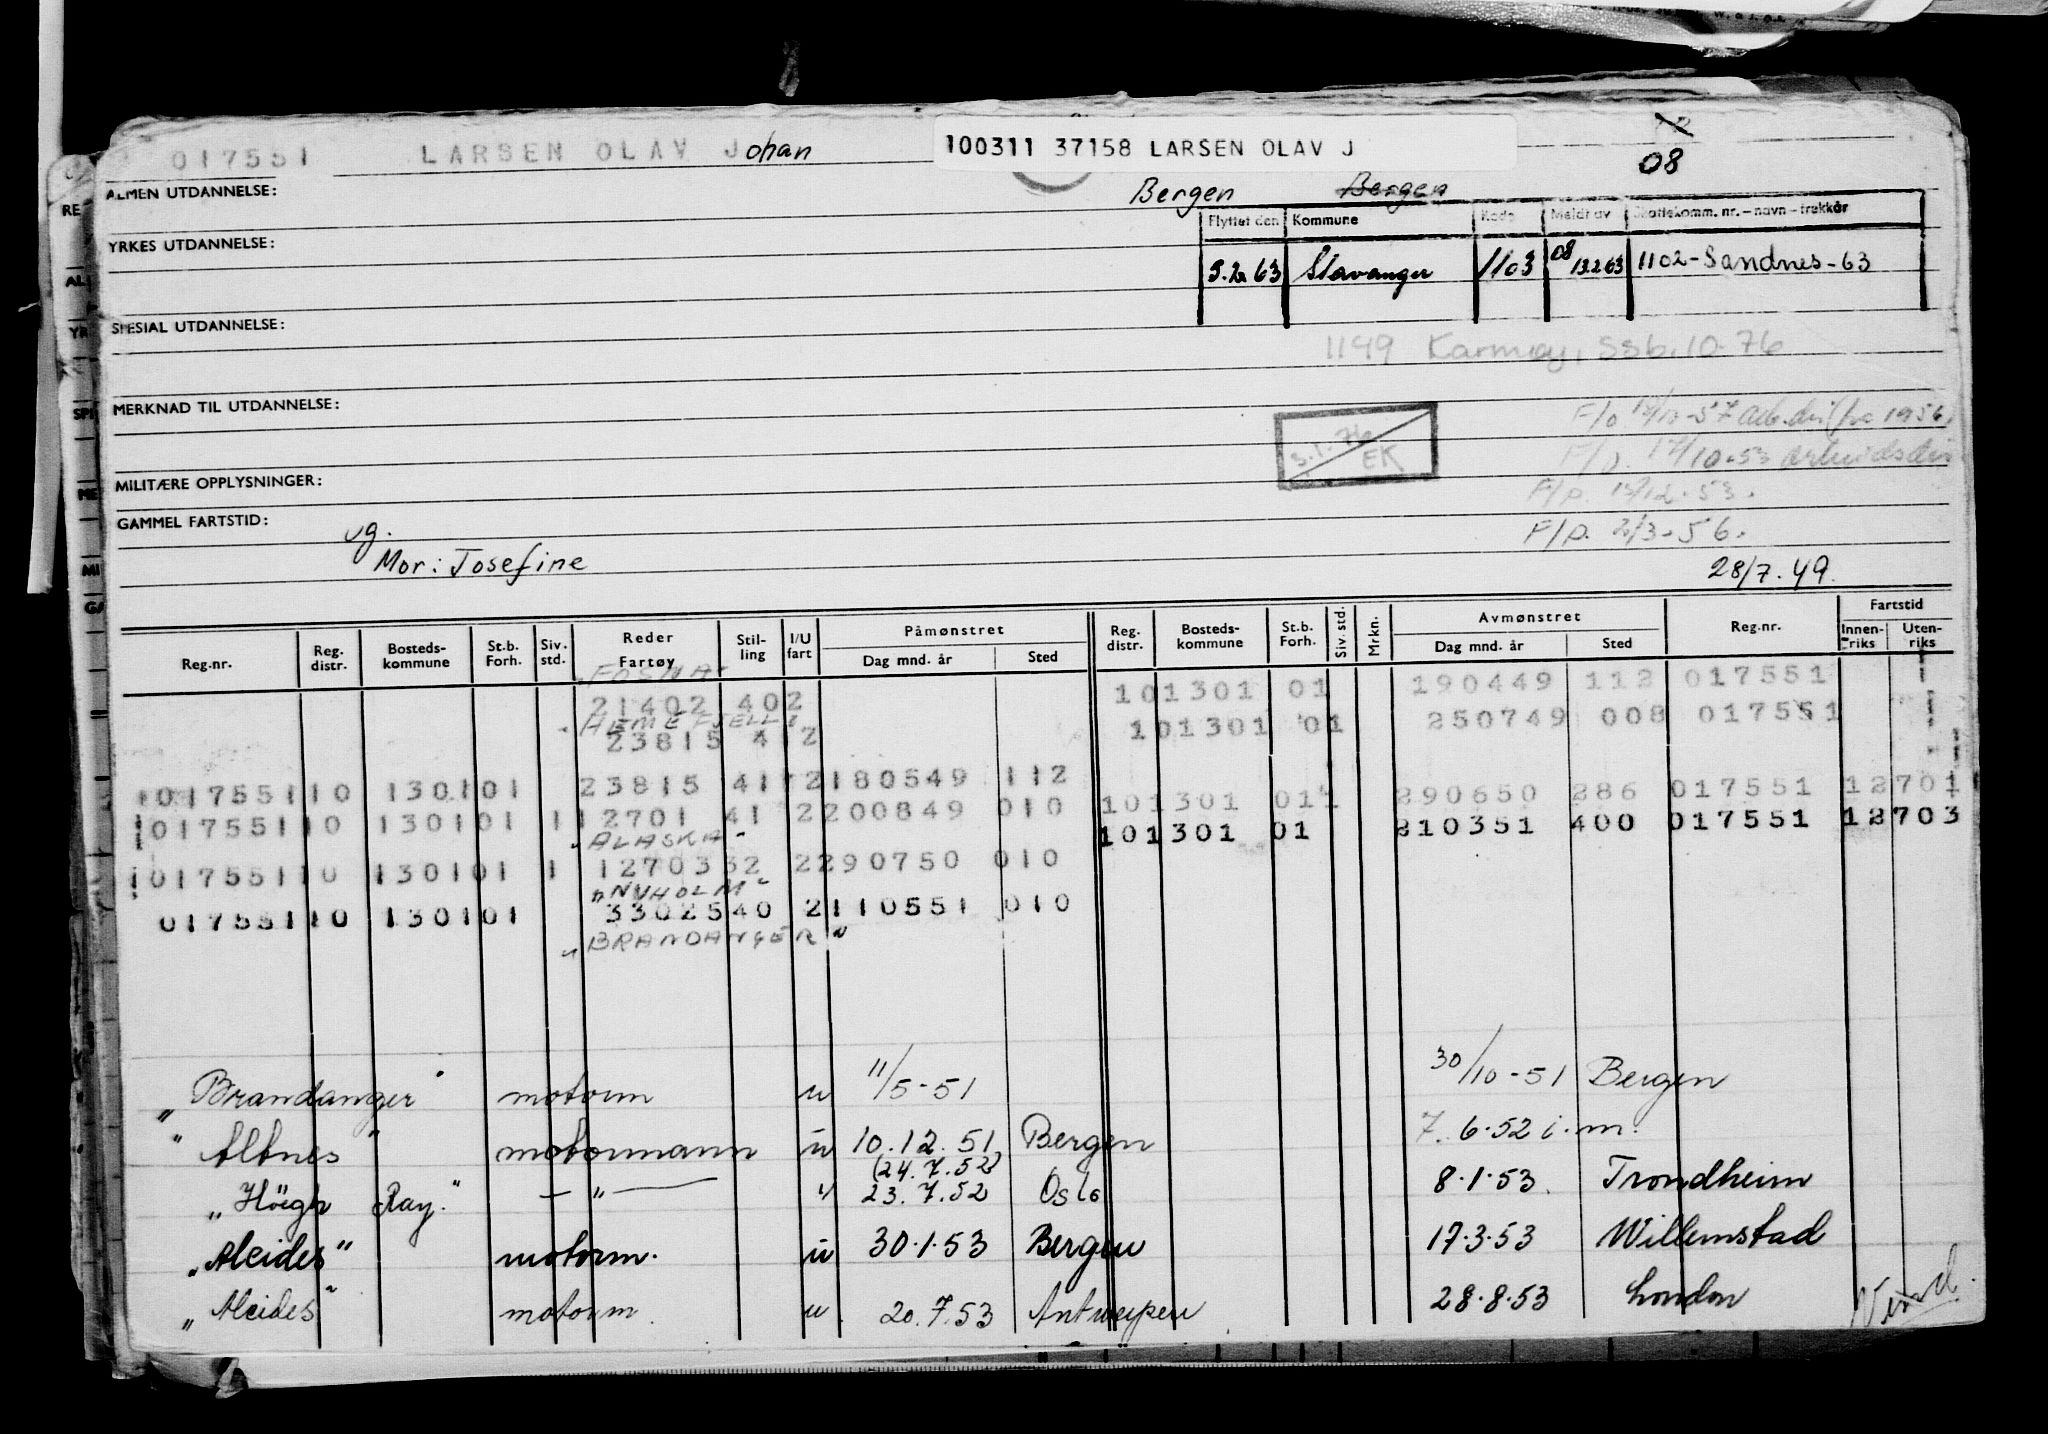 017551 LARSEN OLAV Johan 100311 37158 LARSEN OLAV J
08
ALMEN UTDANNELSE:
Bergen Bergen
Flyttet den Kommune Kode Meldt av Skattekomm. nr. – navn – trekkår
YRKES UTDANNELSE:
5.2.63 Stavanger 1103 08 13.2.63 1102-Sandnes-63
SPESIAL UTDANNELSE:
1149 Karmøy, Ssb. 10-76
MERKNAD TIL UTDANNELSE:
3.1.76 EK
MILITÆRE OPPLYSNINGER:
F/p.
GAMMEL FARTSTID:
ug.
F/p. 2/3-56.
Mor: Josefine
28/7.49.
Reg.nr. Reg. distr. Bosteds-kommune St.b. Forh. Siv. std. Reder Fartøy Stil-ling I/U fart Påmønstret Dag mnd. år Sted Reg. distr. Bosteds-kommune St.b. Forh. Siv. std. Mrkn. Avmønstret Dag mnd. år Sted Reg.nr. Fartstid Innen-riks Uten-riks
"FOSNA"
21402 402 101301 01 190449 112 017551
"HEMEFJELL"
23815 4 2 101301 01 250749 008 017551
01755110 130101 23815 41 2180549 112
01755110 130101 1 12701 41 2200849 010 101301 011 290650 286 017551 12701
"ALASKA"
101301 01 210351 400 017551 12703
01755110 130101 1 1270332 2290750 010
"NYHOLM"
01755110 130101 3302540 2110551 010
"BRANDANGER"
"Brandanger" motorm u 11/5-51 30/10-51 Bergen
"Altnes" motormann u 10.12.51 Bergen 7.6.52 i.m.
(24.7.52)
"Höegh Ray" — " — " 23.7.52 Oslo 8.1.53. Trondheim
"Alcides" motorm. u 30.1.53 Bergen 17.3.53 Willemstad
"Alcides" motorm. u. 20.7.53 Antwerpen 28.8.53 London
Vend.